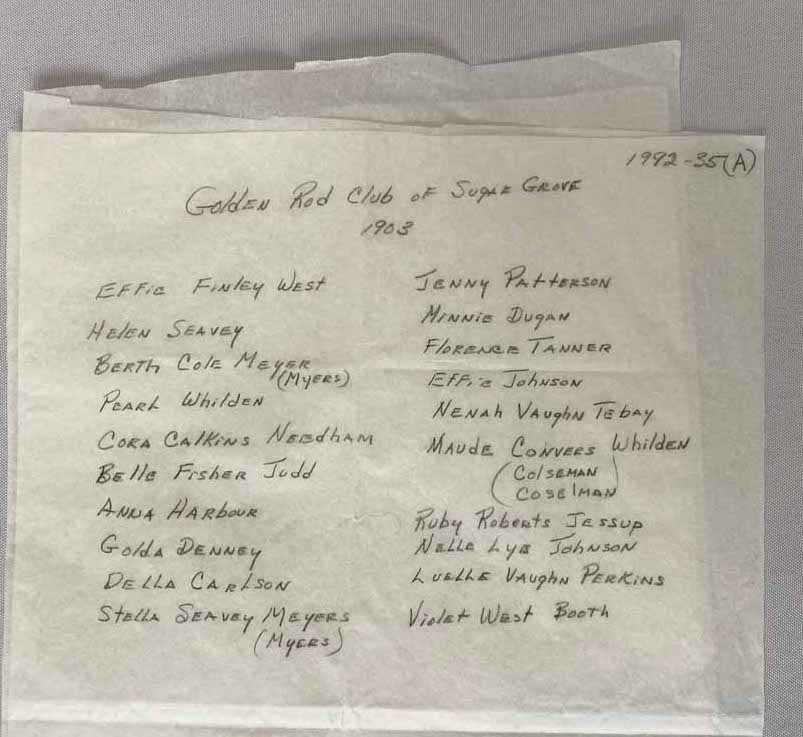 1992-35(A)
Golden Rod Club of Sugar Grove
1903
Effie Finley West
Helen Seavey
Berth Cole Meyer
(Myers)
Pearl Whilden
Cora Calkins Needham
Belle Fisher Judd
Anna Harbour
Golda Denney
Della Carlson
Stella Seavey Meyers
(Myers)
Jenny Patterson
Minnie Dugan
Florence Tanner
Effie Johnson
Nenah Vaughn Tebay
Maude Convers Whilden
(Colseman
Coselman)
Ruby Roberts Jessup
Nelle Lye Johnson
Luelle Vaughn Perkins
Violet West Booth